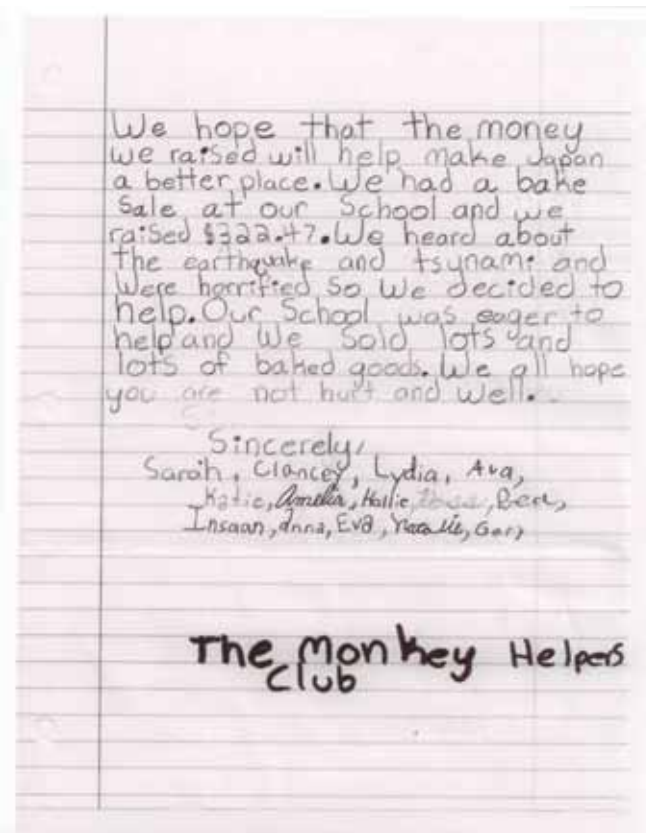 We hope that the money
we raised will help make Japan
a better place. We had a bake
Sale at our School and we
raised $322.47. We heard about
the earthquake and tsunami and
Were horrified So We decided to
help. Our School was eager to
help and We Sold lots and
lots of baked goods. We all hope
you are not hurt and well.
Sincerely,
Sarah, Clancey, Lydia, Ava,
Katie, Amelia, Hallie, Ben,
Insaan, Anna, Eva, Natalie,
The Monkey Helpers
Club